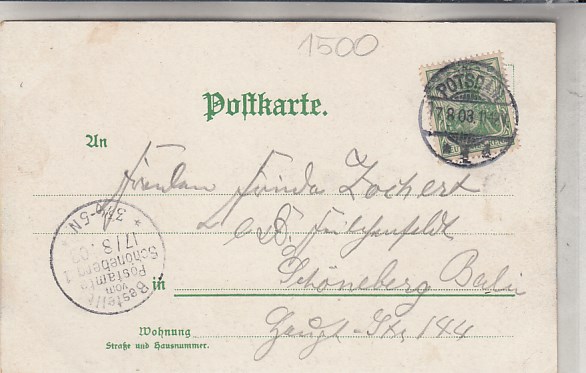 1500
Postkarte.
POTSDAM
8.03.
An
Fräulein Frieda Zochert
in Schöneberg Berlin
Wohnung
Straße und Hausnummer.
Haupt-Str. 144
Bestellt
vom
Postamte
Schöneberg 1
17/8.03
3½-5N